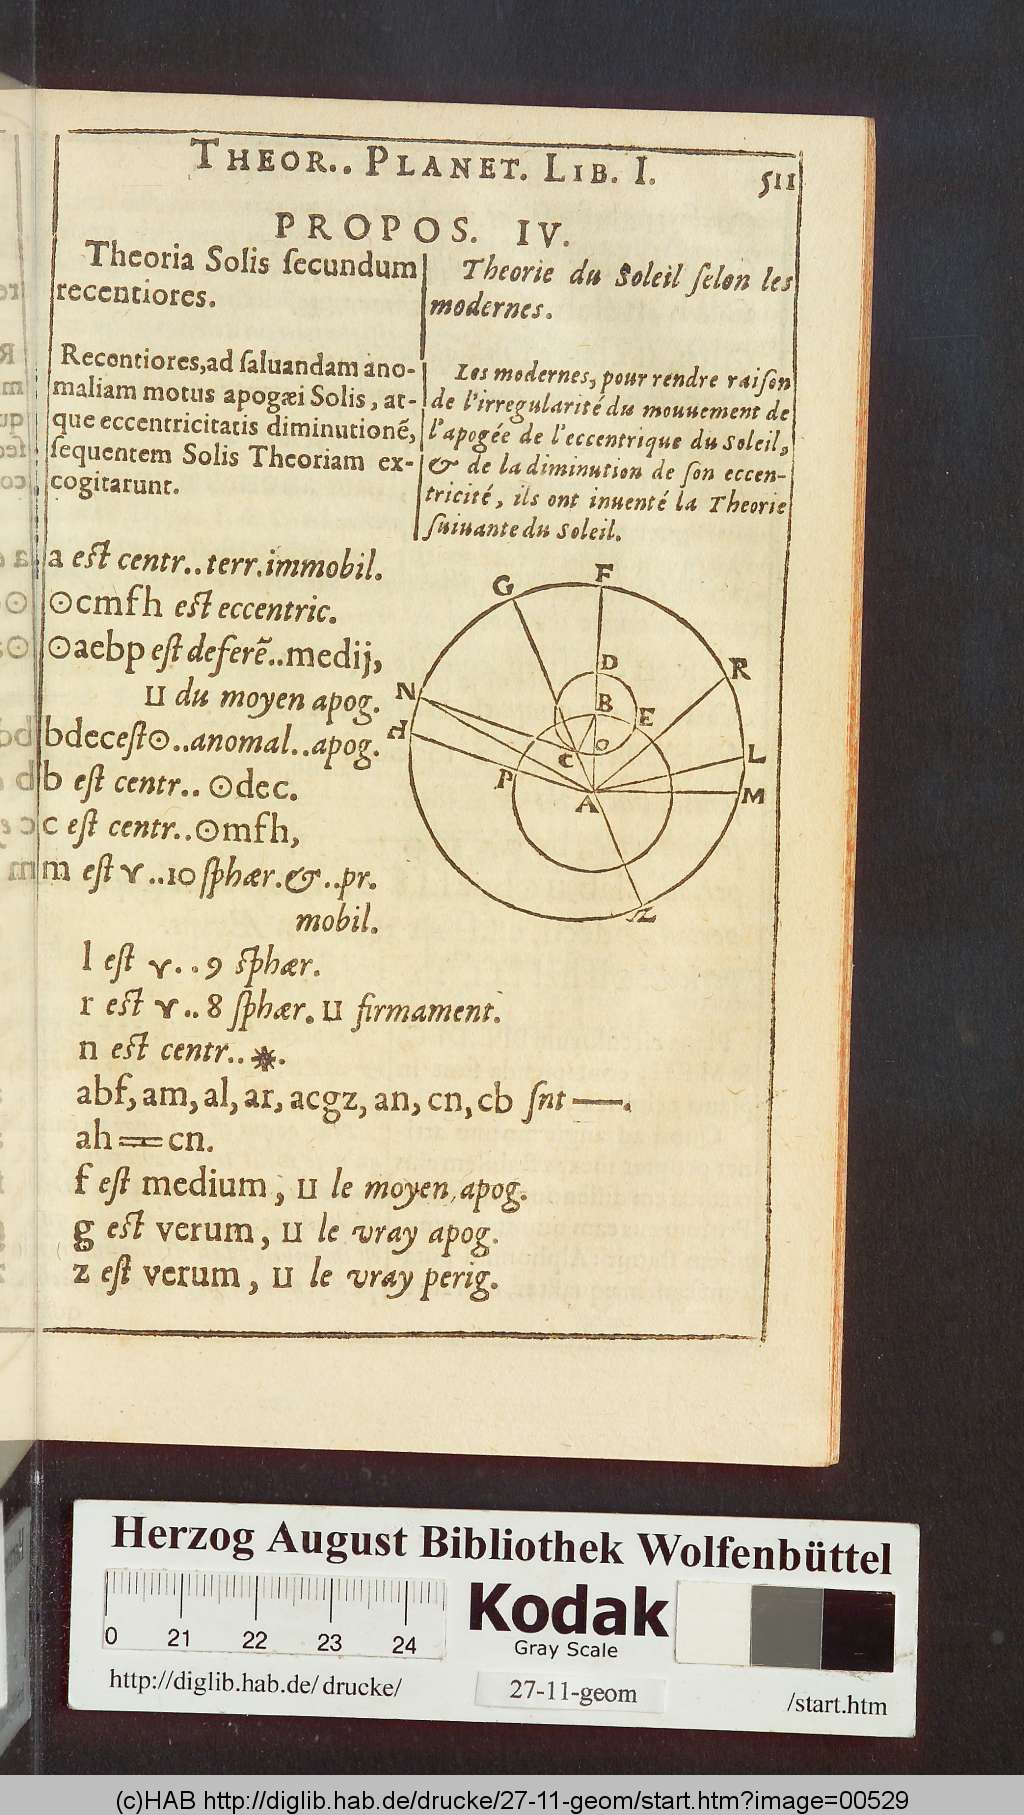 THEOR.. PLANET. LIB. I.
511
PROPOS. IV.
Theoria Solis ſecundum
recentiores.
Recentiores, ad ſaluandam ano-
maliam motus apogæi Solis, at-
que eccentricitatis diminutionẽ,
ſequentem Solis Theoriam ex-
cogitarunt.
Theorie du Soleil ſelon les
modernes.
Les modernes, pour rendre raiſon
de l'irregularité du mouuement de
l'apogée de l'eccentrique du Soleil,
& de la diminution de ſon eccen-
tricité, ils ont inuenté la Theorie
ſuiuante du Soleil.
a eſt centr..terr.immobil.
⊙cmfh eſt eccentric.
⊙aebp eſt deferẽ..medij,
ⵡ du moyen apog.
bdeceſt⊙..anomal..apog.
b eſt centr.. ⊙dec.
c eſt centr..⊙mfh,
m eſt ♈..10 ſphær.&..pr.
mobil.
l eſt ♈..9 ſphær.
r eſt ♈..8 ſphær. ⵡ firmament.
n eſt centr..☀.
abf, am, al, ar, acgz, an, cn, cb ſnt —.
ah=cn.
f eſt medium, ⵡ le moyen apog.
g eſt verum, ⵡ le vray apog.
z eſt verum, ⵡ le vray perig.
G F
D R
N B E
H O L
C
P A M
Z
Herzog August Bibliothek Wolfenbüttel
0 21 22 23 24
Kodak
Gray Scale
http://diglib.hab.de/drucke/
27-11-geom
/start.htm
(c)HAB http://diglib.hab.de/drucke/27-11-geom/start.htm?image=00529